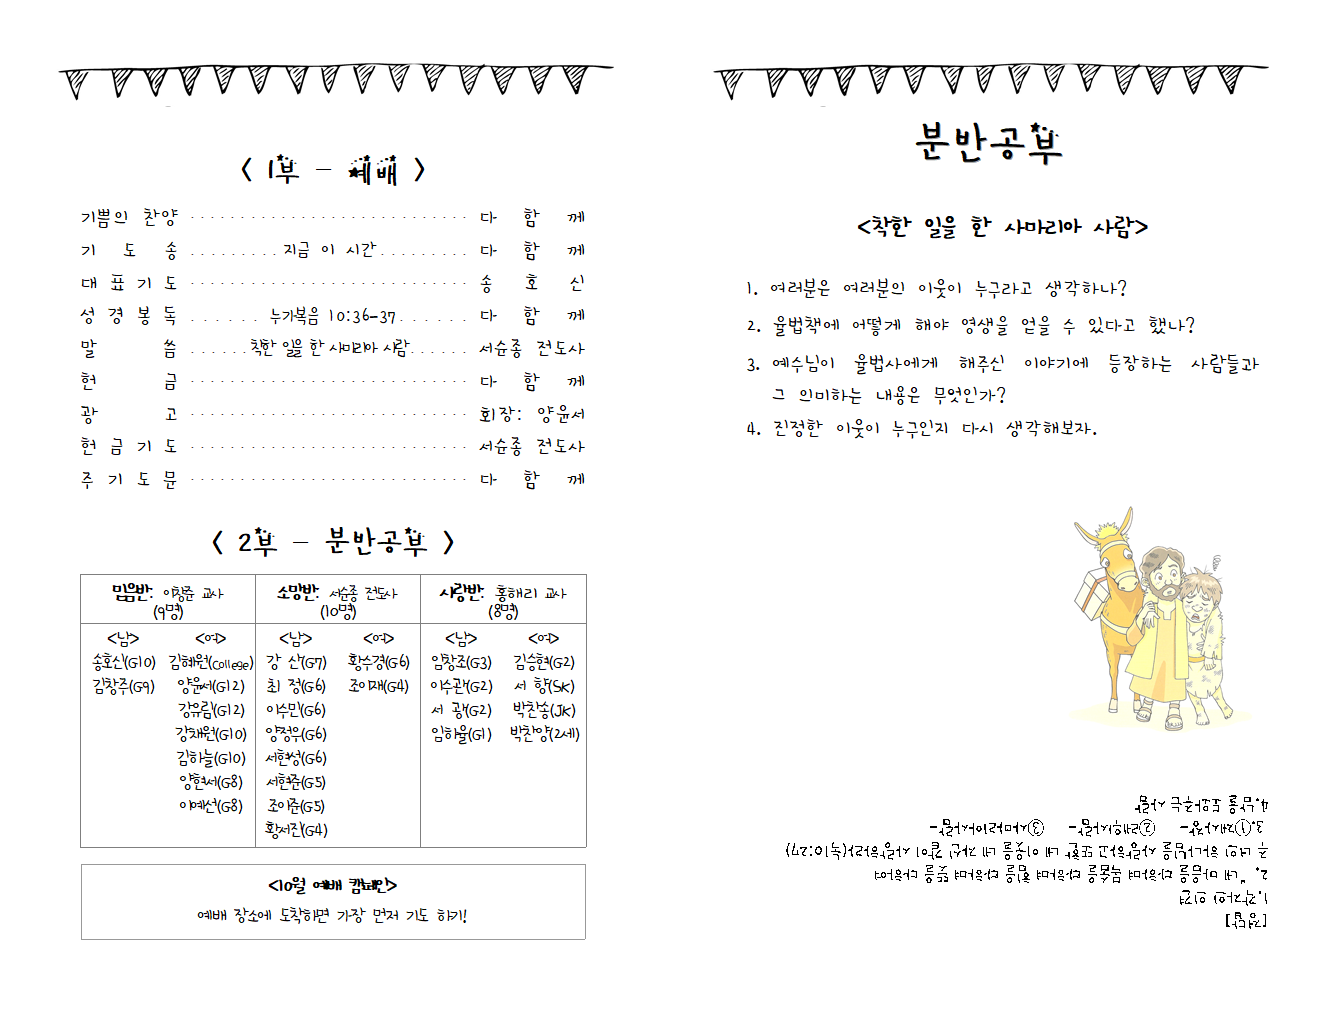 < 1부 - 예배 >
기쁨의 찬양 다 함 께
기 도 송 지금 이 시간 다 함 께
대 표 기 도 송 호 신
성 경 봉 독 누가복음 10:36-37 다 함 께
말 씀 착한 일을 한 사마리아 사람 서순종 전도사
헌 금 다 함 께
광 고 회장: 양윤서
헌 금 기 도 서순종 전도사
주 기 도 문 다 함 께
< 2부 - 분반공부 >
믿음반: 이창준 교사 소망반: 서순종 전도사 사랑반: 홍해리 교사
(9명) (10명) (8명)
<남> <여> <남> <여> <남> <여>
송호신(G10) 김혜원(College) 강 산(G7) 황수경(G6) 임창조(G3) 김승현(G2)
김창주(G9) 양윤서(G12) 최 정(G6) 조이재(G4) 이수관(G2) 서 향(SK)
강유림(G12) 이수민(G6) 서 광(G2) 박찬송(JK)
강채원(G10) 양정우(G6) 임하율(G1) 박찬양(2세)
김하늘(G10) 서현성(G6)
양현서(G8) 서현준(G5)
이예선(G8) 조이준(G5)
황서진(G4)
<10월 예배 캠페인>
예배 장소에 도착하면 가장 먼저 기도 하기!
분반공부
<착한 일을 한 사마리아 사람>
1. 여러분은 여러분의 이웃이 누구라고 생각하나?
2. 율법책에 어떻게 해야 영생을 얻을 수 있다고 했나?
3. 예수님이 율법사에게 해주신 이야기에 등장하는 사람들과
그 의미하는 내용은 무엇인가?
4. 진정한 이웃이 누구인지 다시 생각해보자.
[정답]
1.각자의 의견
2. "네 마음을 다하며 목숨을 다하며 힘을 다하며 뜻을 다하여
주 너의 하나님을 사랑하고 또한 네 이웃을 네 자신 같이 사랑하라(눅10:27)
3.①제사장- ②레위사람- ③사마리아사람-
4.남을 도와주는 사람